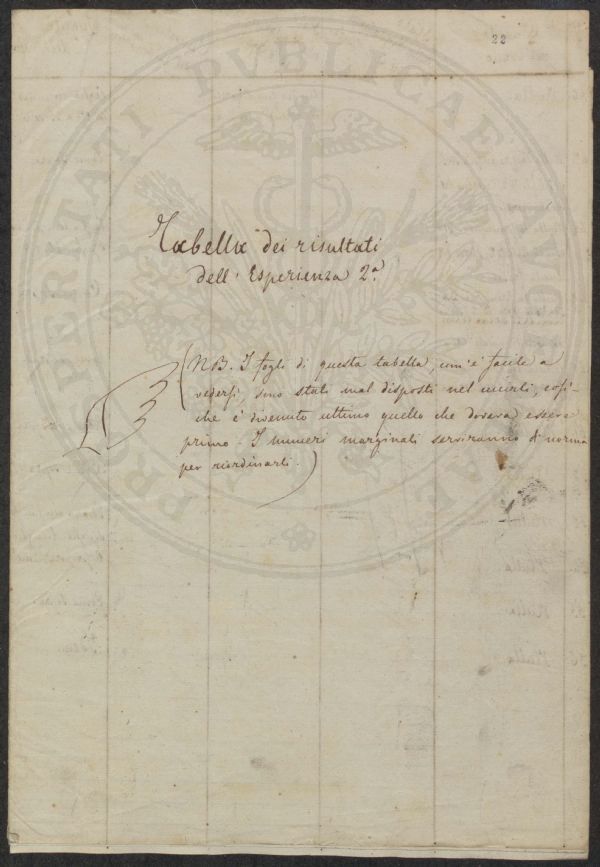 22
Tabella dei risultati
dell' Esperienza 2.a
(NB. I fogli di questa tabella, com' è facile a
vedersi, sono stati mal disposti nel cucirli, cosi-
che è divenuto ultimo quello che doveva essere
primo - I numeri marginali serviranno di norma
per riordinarli.)
PROSPERITATI PVBLICAE AVG